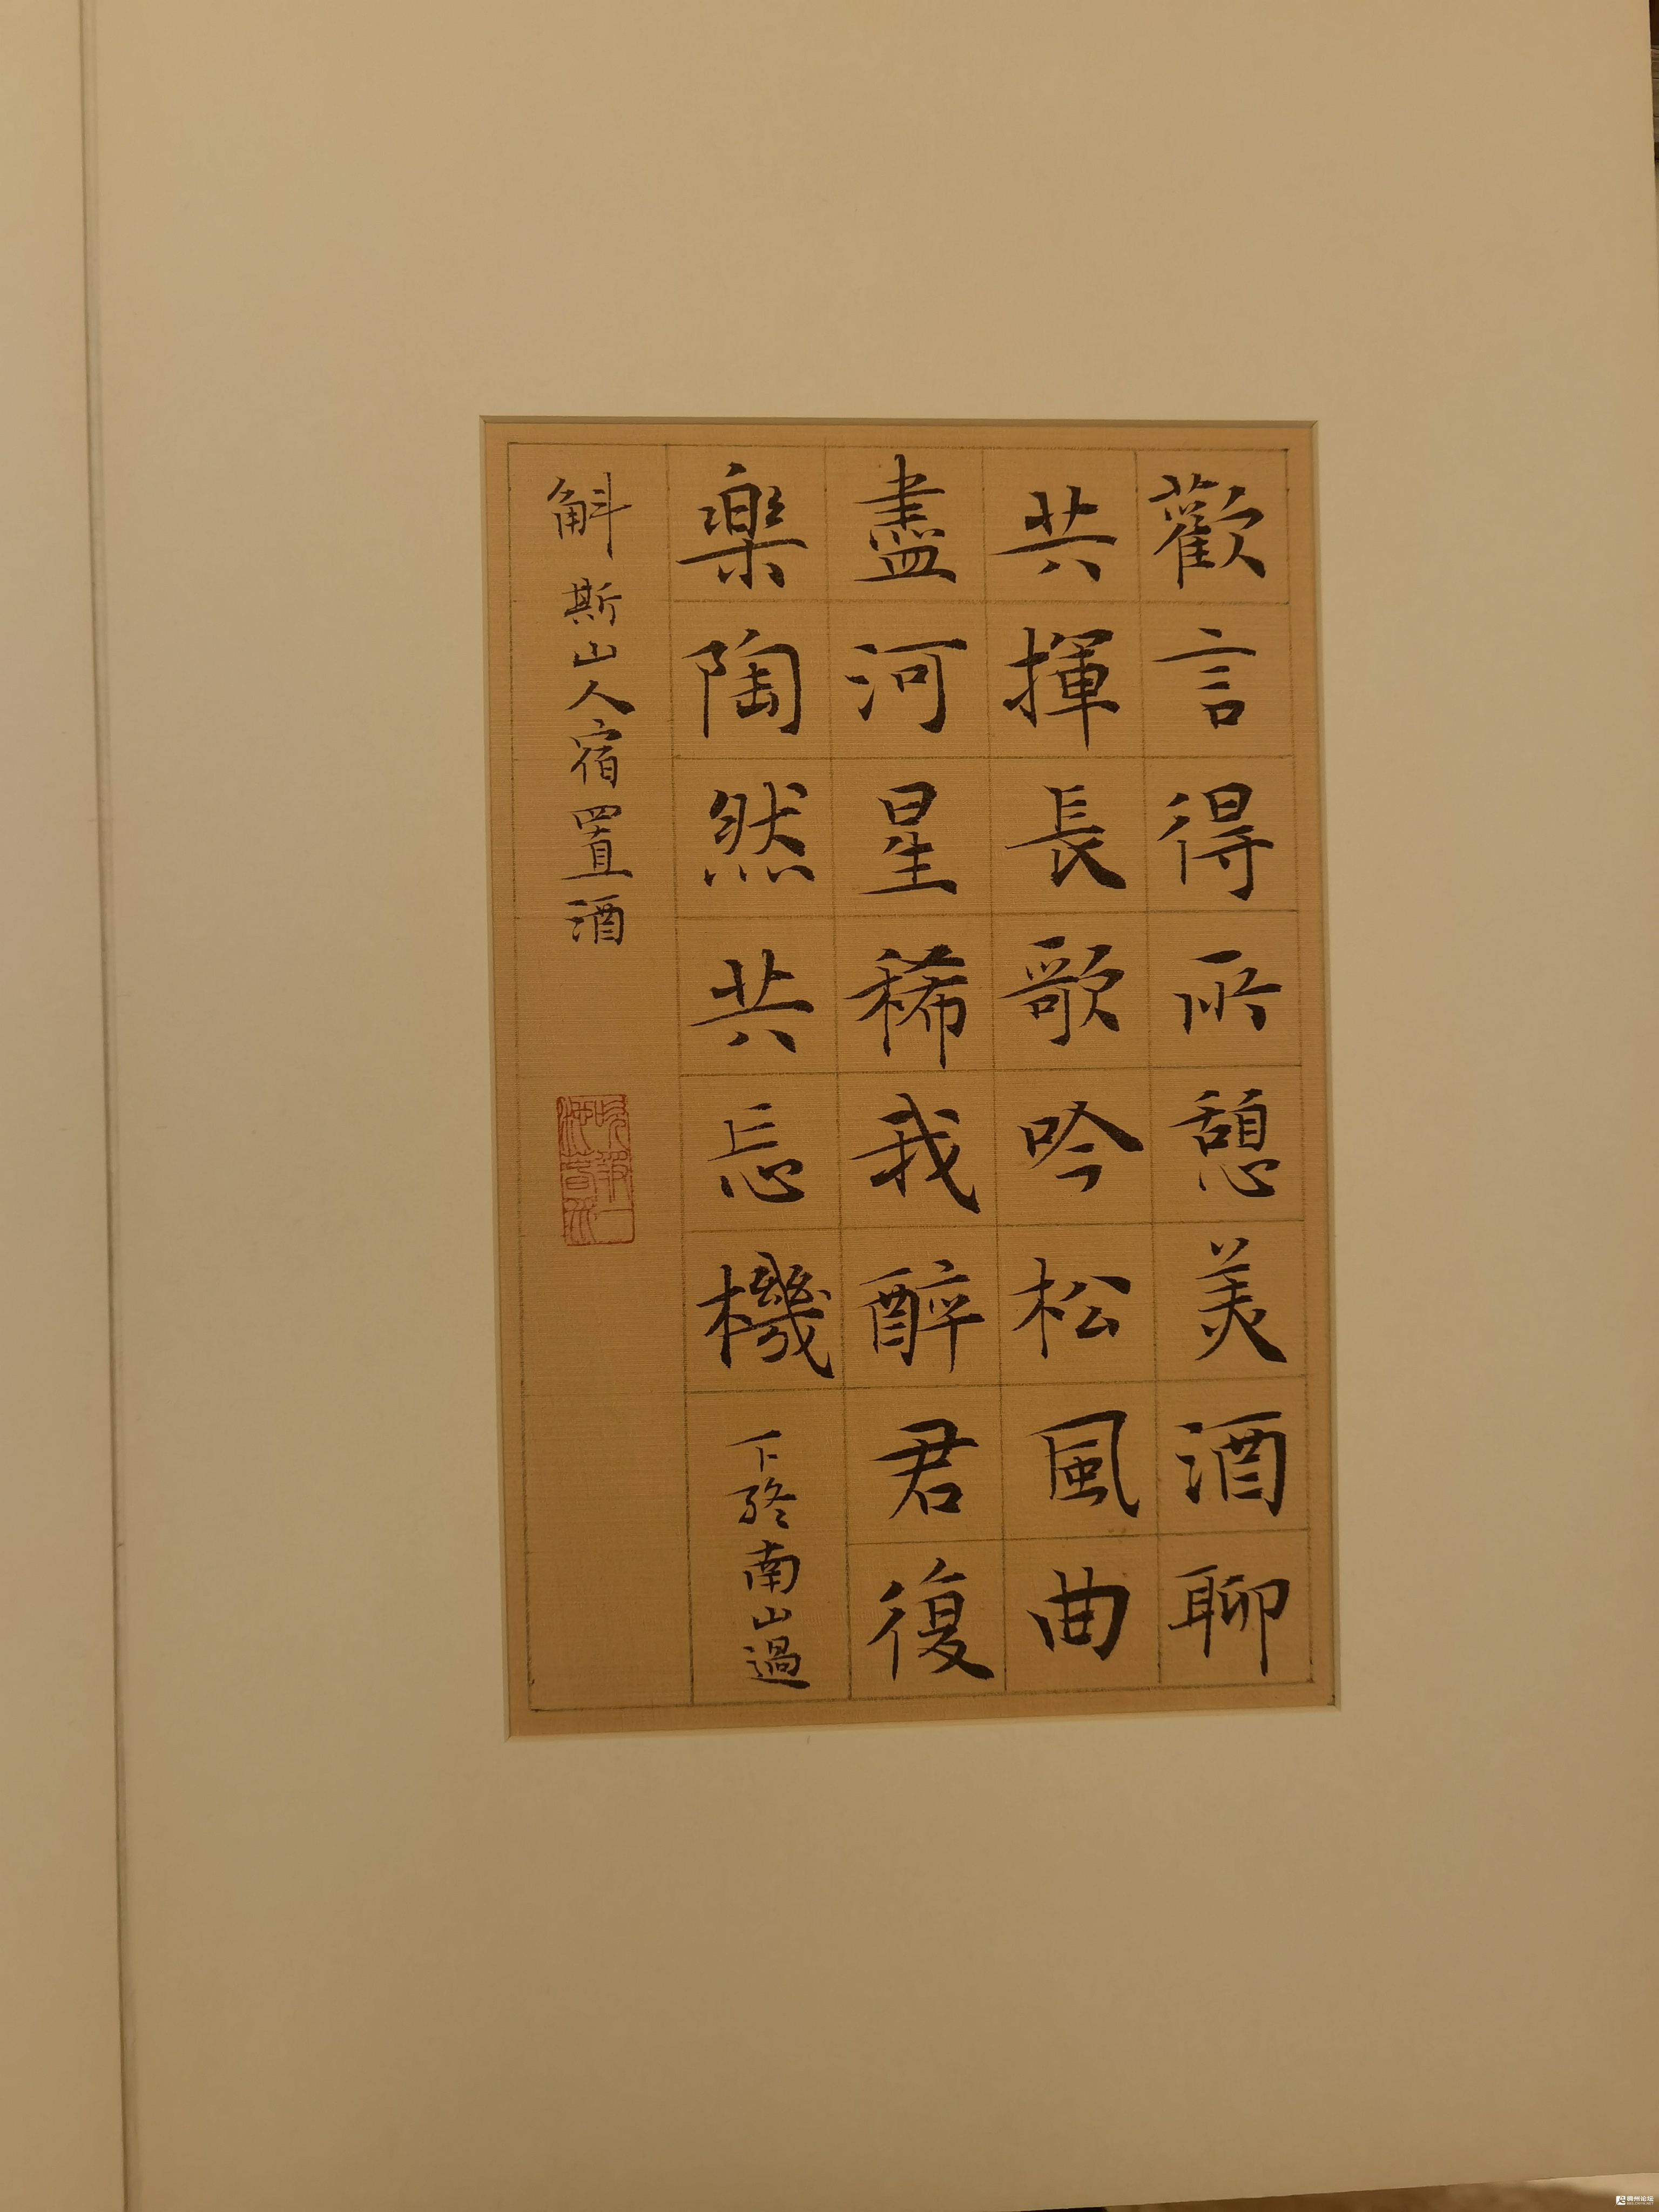 歡言得所憩美酒聊
共揮長歌吟松風曲
盡河星稀我醉君復
樂陶然共忘機下終南山過
斛斯山人宿置酒